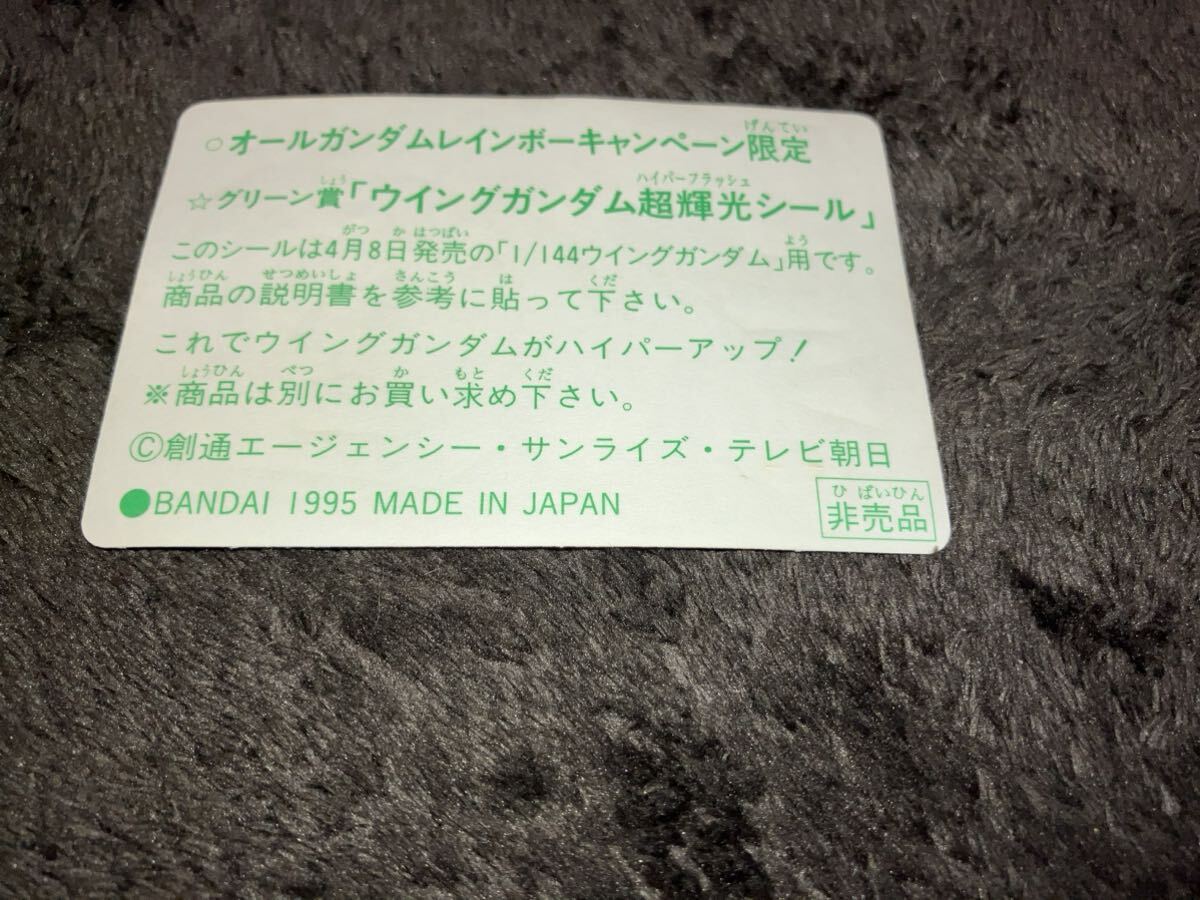 ○オールガンダムレインボーキャンペーン限定
げんてい
☆グリーン賞「ウイングガンダム超輝光シール」
しょう ハイパーフラッシュ
このシールは4月8日発売の「1/144ウイングガンダム」用です。
がつ か はつばい よう
商品の説明書を参考に貼って下さい。
しょうひん せつめいしょ さんこう は くだ
これでウイングガンダムがハイパーアップ!
※商品は別にお買い求め下さい。
しょうひん べつ か もと くだ
©創通エージェンシー・サンライズ・テレビ朝日
●BANDAI 1995 MADE IN JAPAN
ひ ばいひん
非売品